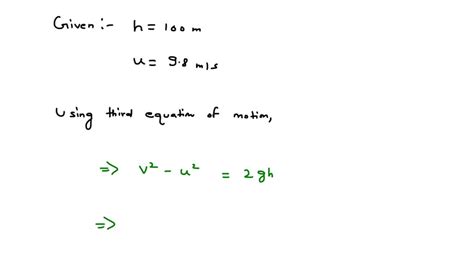 Given :- h = 100 m
u = 9.8 m/s
Using third equation of motion,
=> v² - u² = 2gh
=>